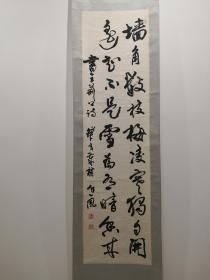 墙角数枝梅凌寒独自开
遥知不是雪为有暗香来
書王荆公诗